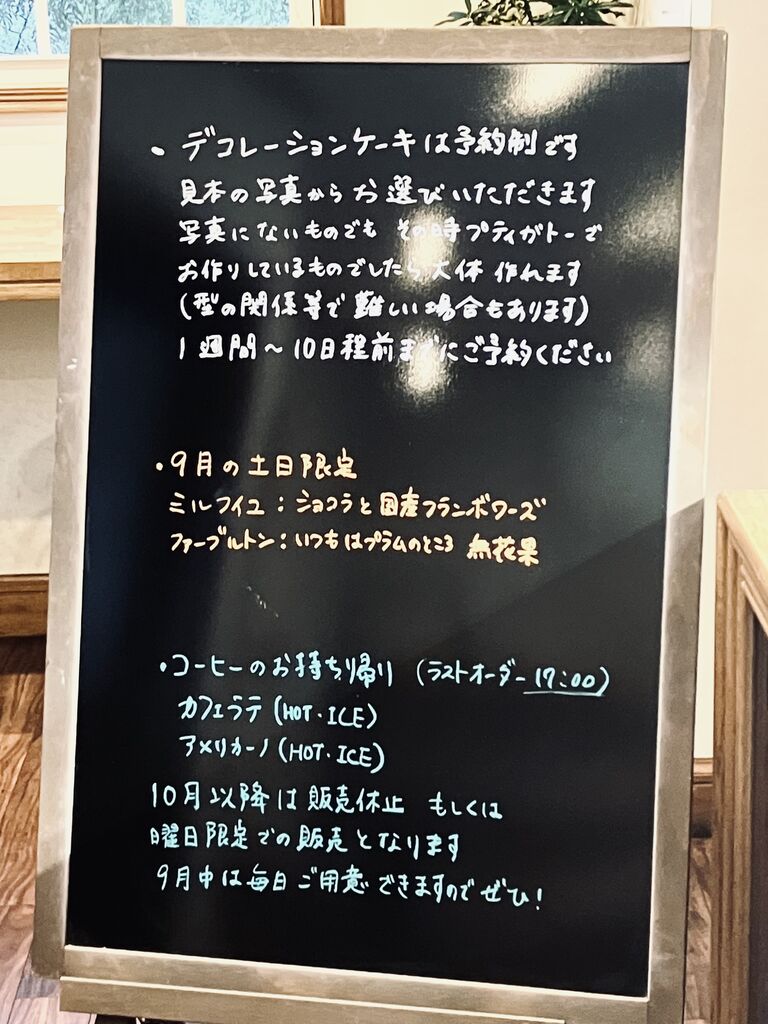 ・デコレーションケーキは予約制です
見本の写真からお選びいただきます
写真にないものでも その時プティガトーで
お作りしているものでしたら大体 作れます
(型の関係等で難しい場合もあります)
1週間〜10日程前までにご予約ください
・9月の土日限定
ミルフイユ：ショコラと国産フランボワーズ
ファーブルトン：いつもはプラムのところ 無花果
・コーヒーのお持ち帰り (ラストオーダー 17:00)
カフェラテ (HOT・ICE)
アメリカーノ (HOT・ICE)
10月以降は販売休止 もしくは
曜日限定での販売となります
9月中は毎日ご用意できますのでぜひ!